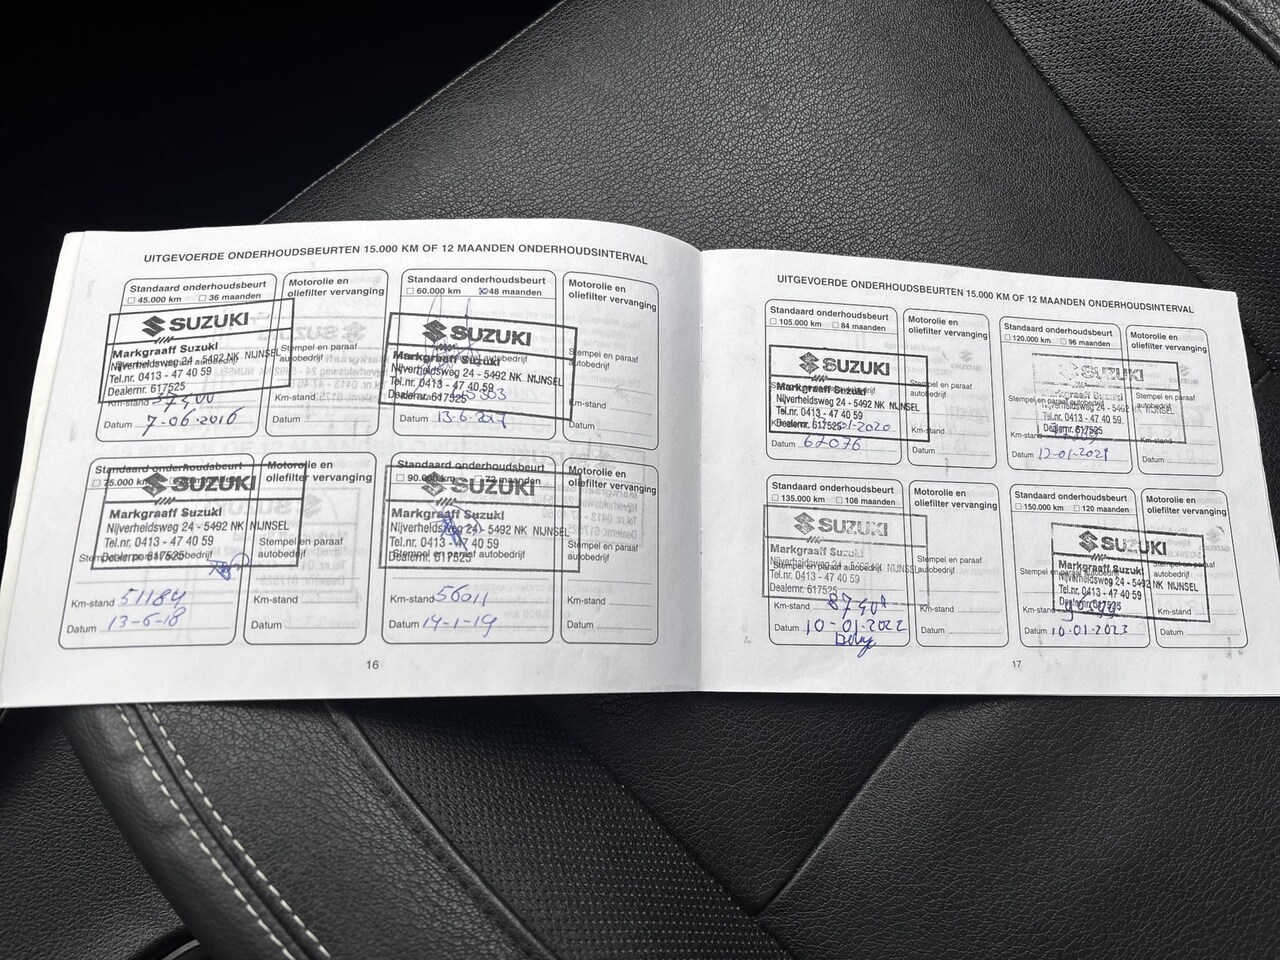 UITGEVOERDE ONDERHOUDSBEURTEN 15.000 KM OF 12 MAANDEN ONDERHOUDSINTERVAL
Standaard onderhoudsbeurt
45.000 km 36 maanden
SUZUKI
Markgraaff Suzuki
Nijverheidsweg 24 - 5492 NK NIJNSEL
Tel.nr. 0413 - 47 40 59
Dealernr. 617525
Km-stand
Datum 7-06-2016
Motorolie en
oliefilter vervanging
Stempel en paraaf
autobedrijf
Km-stand
Datum
Standaard onderhoudsbeurt
60.000 km 48 maanden
SUZUKI
Markgraaff Suzuki
Nijverheidsweg 24 - 5492 NK NIJNSEL
Tel.nr. 0413 - 47 40 59
Dealernr. 617525
Datum 13-6-2017
Motorolie en
oliefilter vervanging
Stempel en paraaf
autobedrijf
Km-stand
Datum
Standaard onderhoudsbeurt
75.000 km
SUZUKI
Markgraaff Suzuki
Nijverheidsweg 24 - 5492 NK NIJNSEL
Tel.nr. 0413 - 47 40 59
Dealernr. 617525
Km-stand 51184
Datum 13-6-18
Motorolie en
oliefilter vervanging
Stempel en paraaf
autobedrijf
Km-stand
Datum
Standaard onderhoudsbeurt
90.000 km 72 maanden
SUZUKI
Markgraaff Suzuki
Nijverheidsweg 24 - 5492 NK NIJNSEL
Tel.nr. 0413 - 47 40 59
Stempel en paraaf autobedrijf
Dealernr. 617525
Km-stand 56011
Datum 14-1-19
Motorolie en
oliefilter vervanging
Stempel en paraaf
autobedrijf
Km-stand
Datum
16
UITGEVOERDE ONDERHOUDSBEURTEN 15.000 KM OF 12 MAANDEN ONDERHOUDSINTERVAL
Standaard onderhoudsbeurt
105.000 km 84 maanden
SUZUKI
Markgraaff Suzuki
Nijverheidsweg 24 - 5492 NK NIJNSEL
Tel.nr. 0413 - 47 40 59
Dealernr. 617525
Datum 62076
Motorolie en
oliefilter vervanging
Stempel en paraaf
autobedrijf
Km-stand
Datum
Standaard onderhoudsbeurt
120.000 km 96 maanden
SUZUKI
Markgraaff Suzuki
Nijverheidsweg 24 - 5492 NK NIJNSEL
Tel.nr. 0413 - 47 40 59
Dealernr. 617525
Km-stand
Datum 12-01-2021
Motorolie en
oliefilter vervanging
Stempel en paraaf
autobedrijf
Km-stand
Datum
Standaard onderhoudsbeurt
135.000 km 108 maanden
SUZUKI
Markgraaff Suzuki
Tel.nr. 0413 - 47 40 59
Dealernr. 617525
Km-stand
Datum 10-01-2022
Motorolie en
oliefilter vervanging
Stempel en paraaf
autobedrijf
Km-stand
Datum
Standaard onderhoudsbeurt
150.000 km 120 maanden
SUZUKI
Markgraaff Suzuki
Nijverheidsweg 24 - 5492 NK NIJNSEL
Tel.nr. 0413 - 47 40 59
Dealernr. 617525
Km-stand
Datum 10-01-2023
Motorolie en
oliefilter vervanging
Stempel en paraaf
autobedrijf
Km-stand
Datum
17